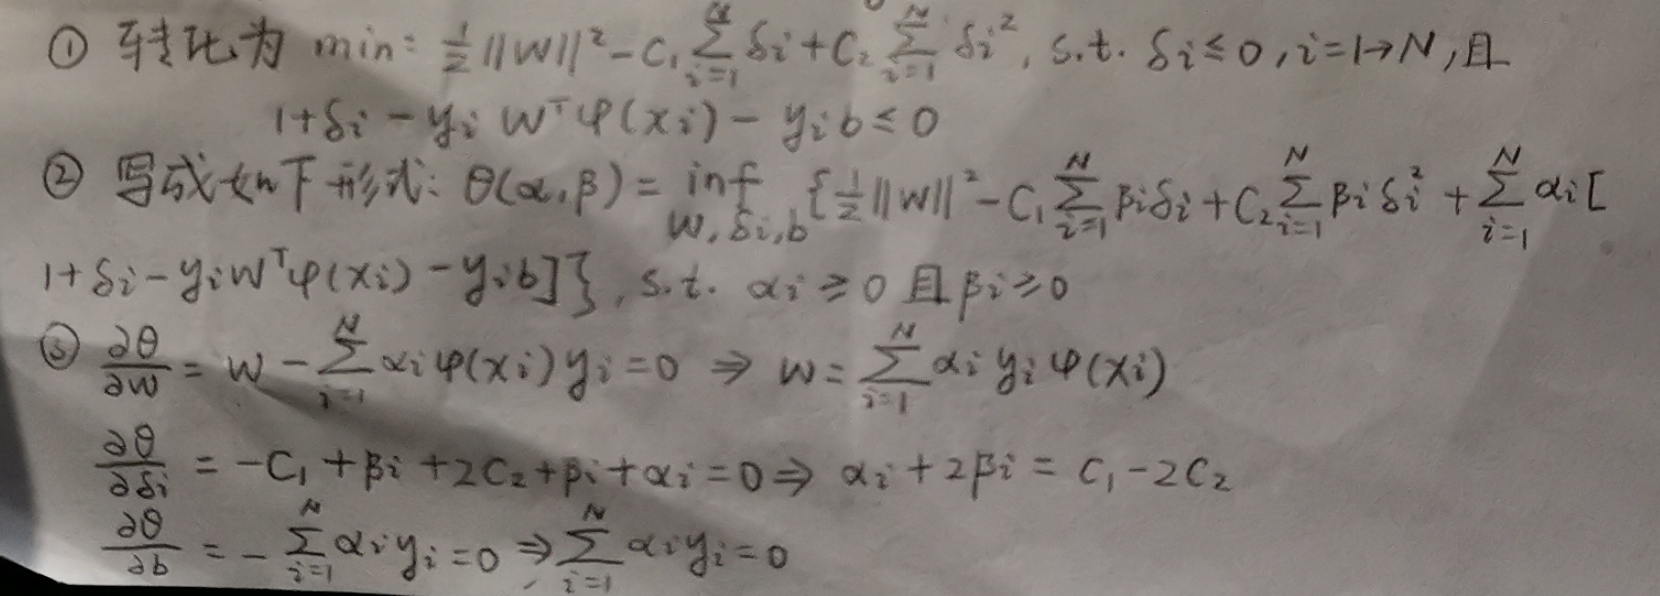 ① 转化为 min: ½||W||² - C₁∑ᵢ₌₁ᴺ δᵢ + C₂∑ᵢ₌₁ᴺ δᵢ², s.t. δᵢ ≤ 0, i=1→N, 且
1+δᵢ - yᵢ Wᵀφ(xᵢ) - yᵢb ≤ 0
② 写成如下形式: θ(α,β) = inf_{W,δᵢ,b} {½||W||² - C₁∑ᵢ₌₁ᴺ βᵢδᵢ + C₂∑ᵢ₌₁ᴺ βᵢδᵢ² + ∑ᵢ₌₁ᴺ αᵢ[
1+δᵢ - yᵢWᵀφ(xᵢ) - yᵢb]}, s.t. αᵢ ≥ 0 且 βᵢ ≥ 0
③ ∂θ/∂w = w - ∑ᵢ₌₁ᴺ αᵢφ(xᵢ)yᵢ = 0 ⇒ w = ∑ᵢ₌₁ᴺ αᵢyᵢφ(xᵢ)
∂θ/∂δᵢ = -C₁ + βᵢ + 2C₂ + βᵢ + αᵢ = 0 ⇒ αᵢ + 2βᵢ = C₁ - 2C₂
∂θ/∂b = -∑ᵢ₌₁ᴺ αᵢyᵢ = 0 ⇒ ∑ᵢ₌₁ᴺ αᵢyᵢ = 0